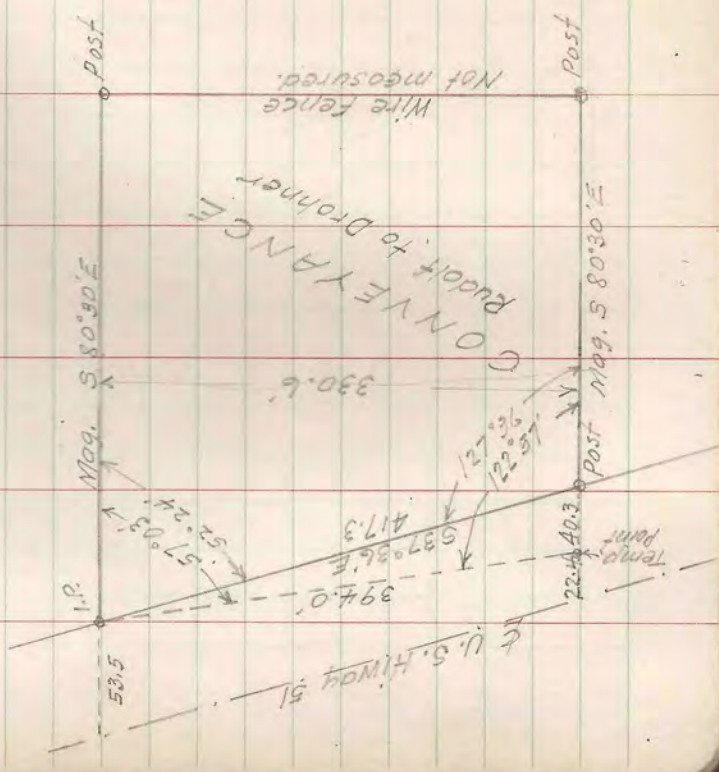 Post
Post
Wire Fence
Not measured.
CONVEYANCE
Rudolf to Drohner
Mag. S 80°30'E
Mag. S 80°30'E
330.6'
127°36'
122°57'
57°03'
52°24'
I.P.
Post
S 37°36'E
417.3
394.0'
22.4
40.3
Temp.
Point
53.5
℄ U.S. Hiway 51